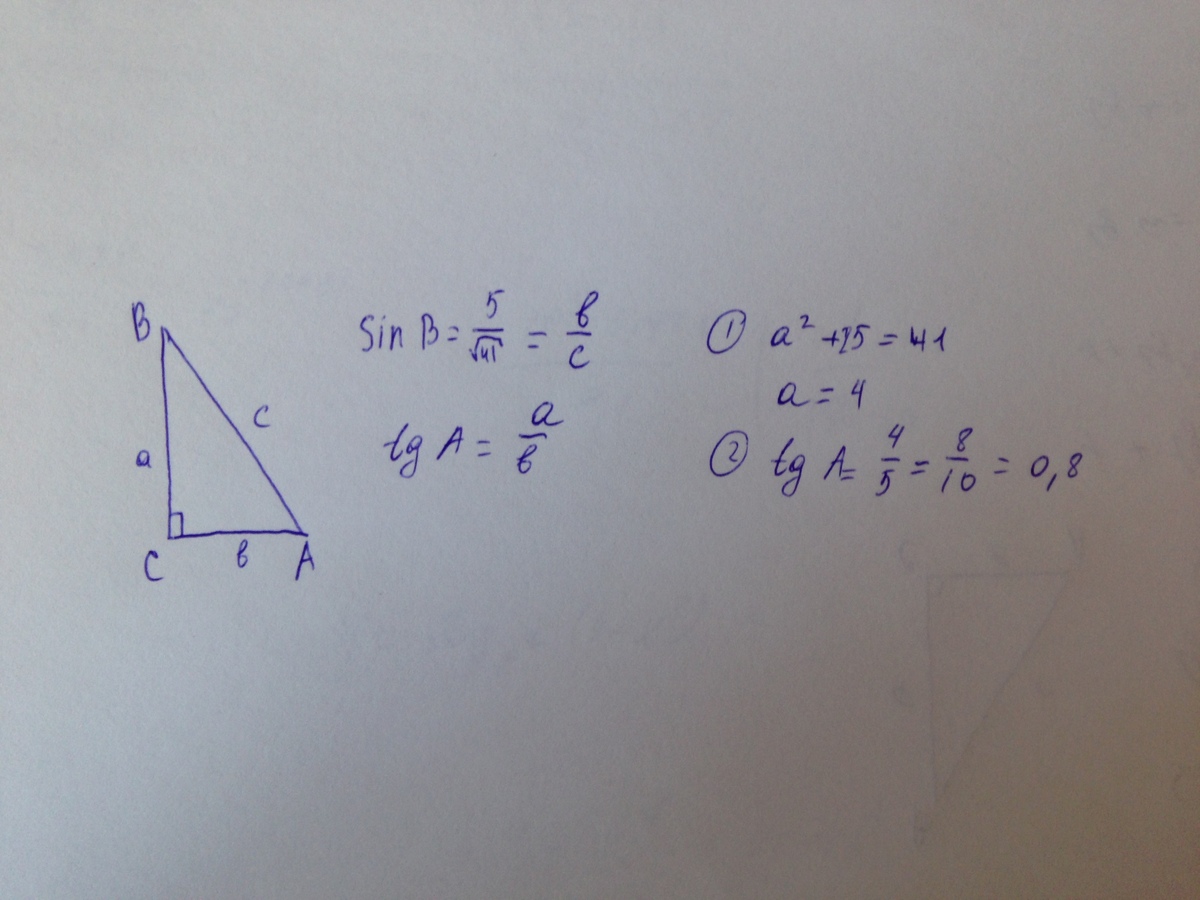 B
a
c
C
в
A
sin B = 5/√41 = в/c
tg A = a/в
① a² + 25 = 41
a = 4
② tg A = 4/5 = 8/10 = 0,8